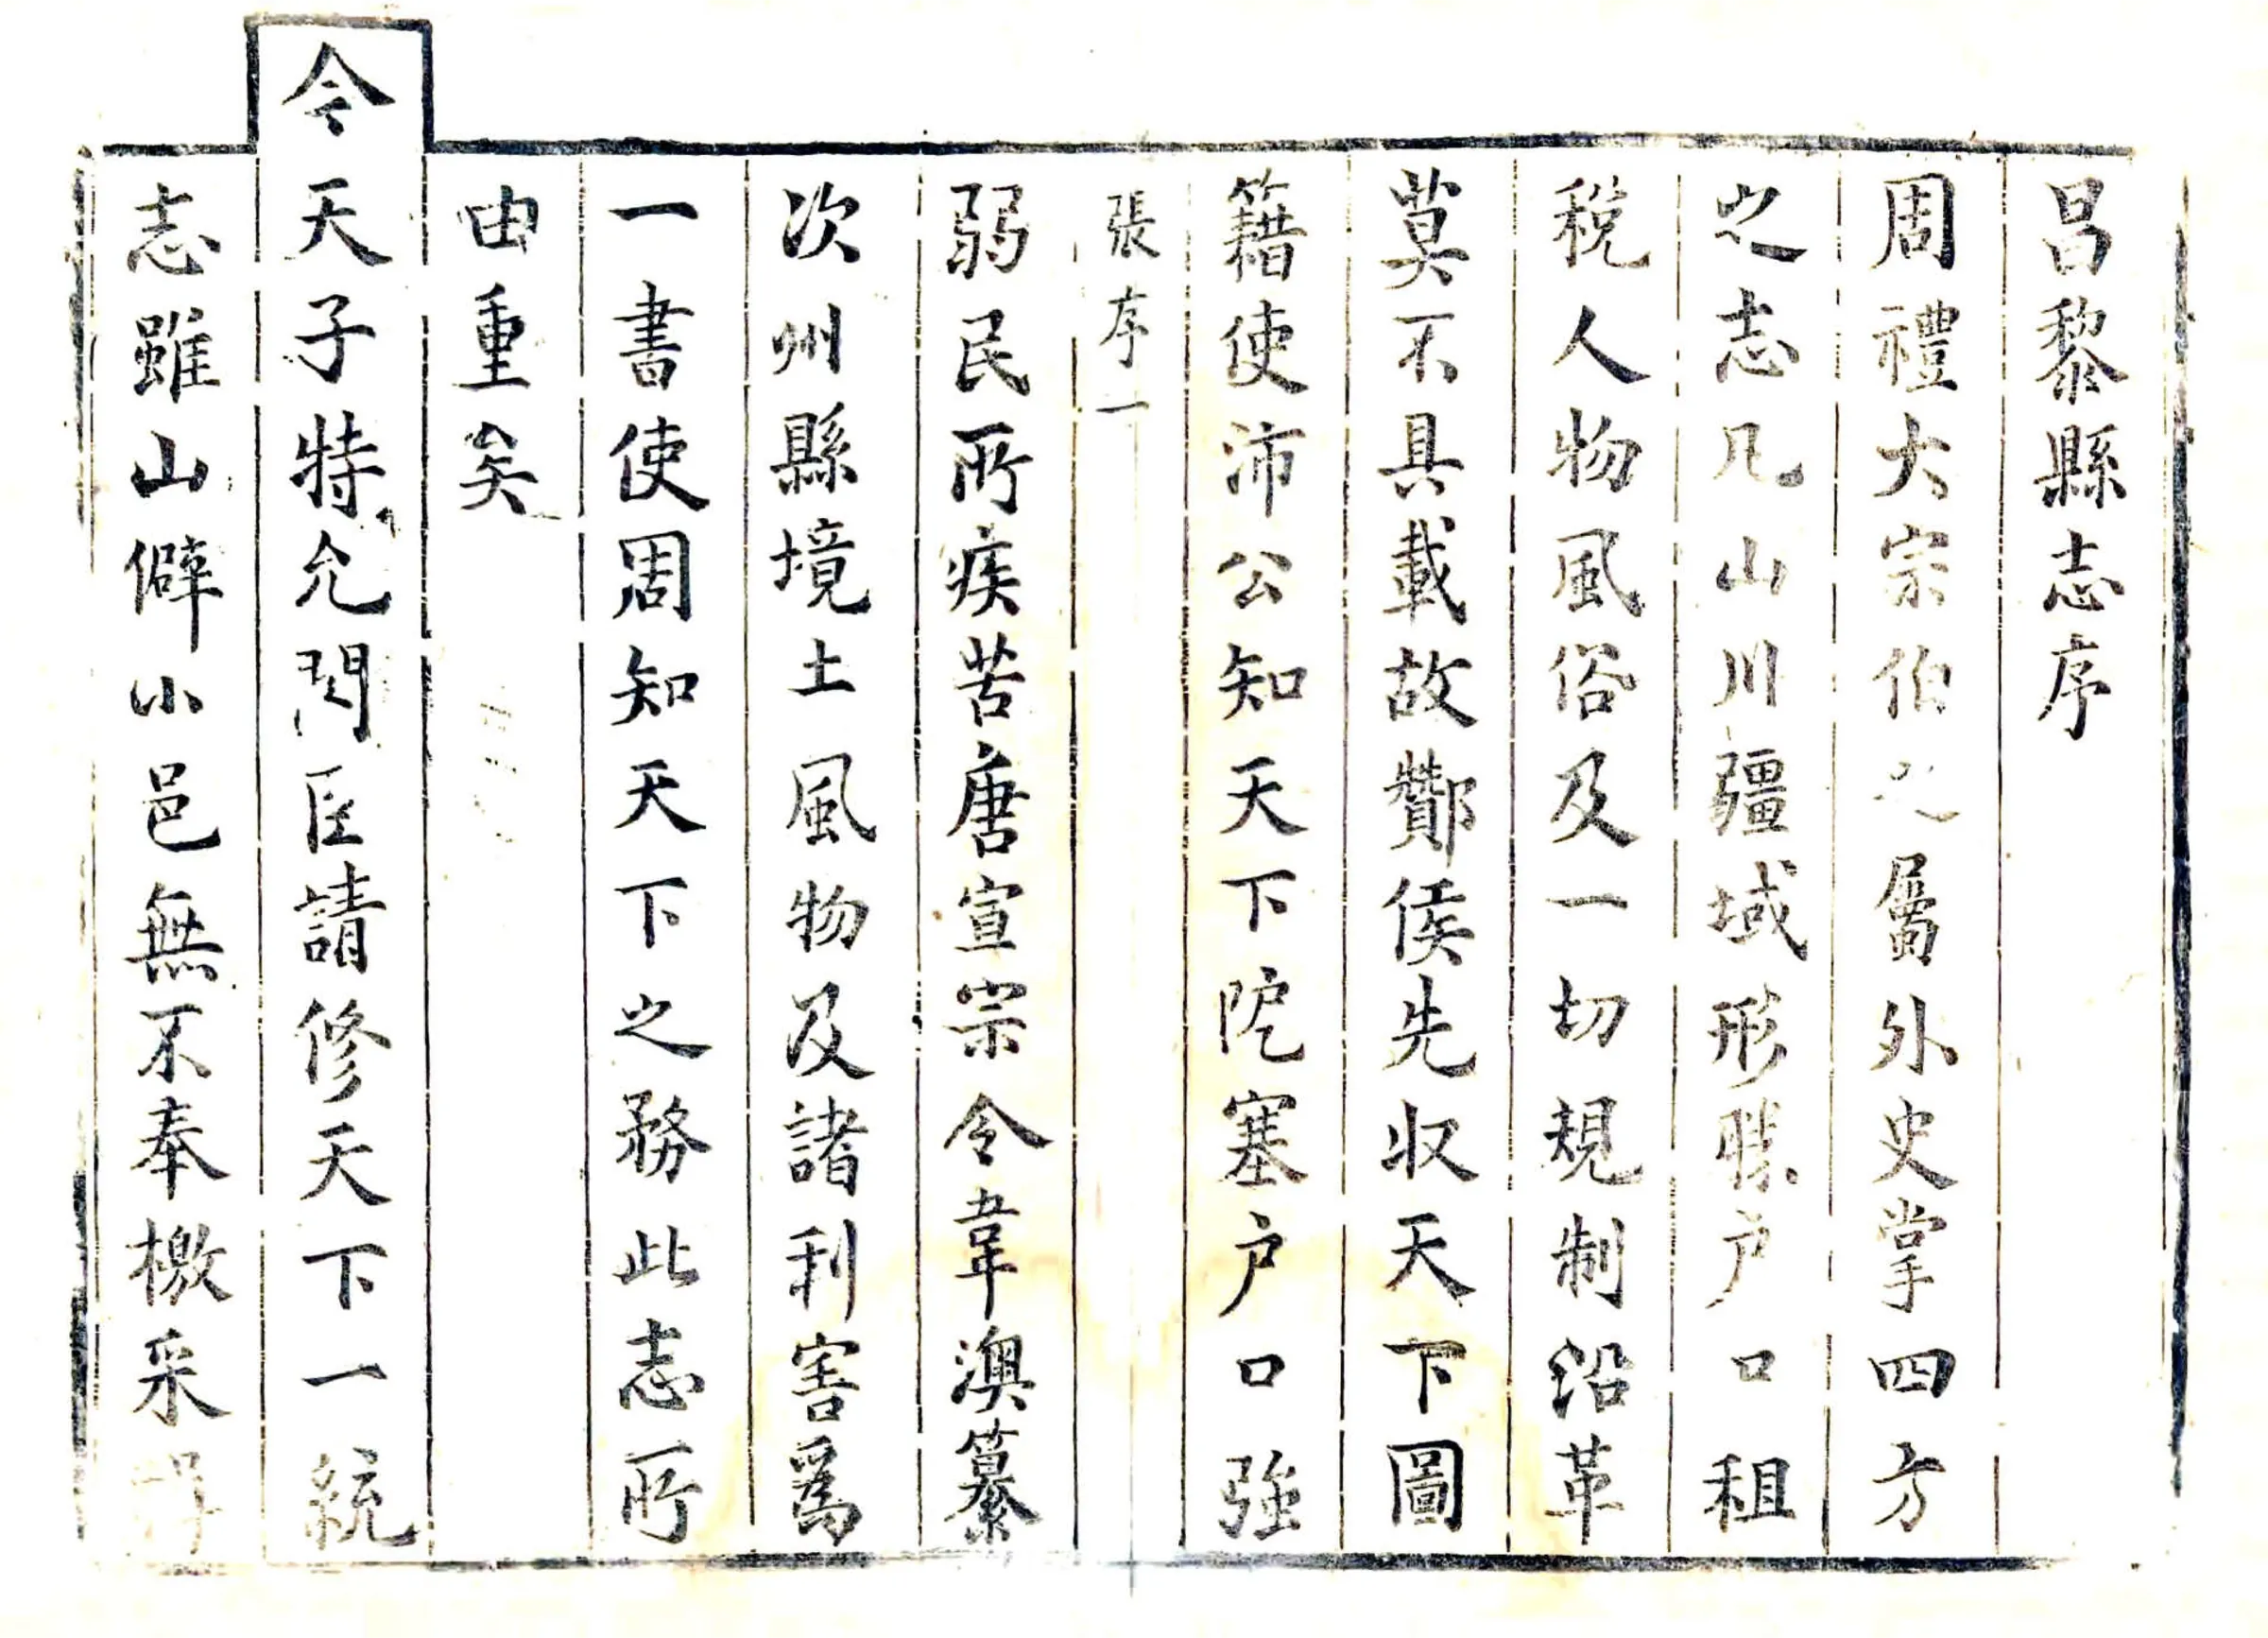 昌黎縣志序
周禮大宗伯之屬外史掌四方
之志凡山川疆域形勝户口租
稅人物風俗及一切規制沿革
莫不具載故酇侯先收天下圖
籍使沛公知天下阨塞户口強
張序一
弱民所疾苦唐宣宗令韋澳纂
次州縣境土風物及諸利害爲
一書使周知天下之務此志所
由重矣
今天子特允閣臣請修天下一統
志雖山僻小邑無不奉檄采